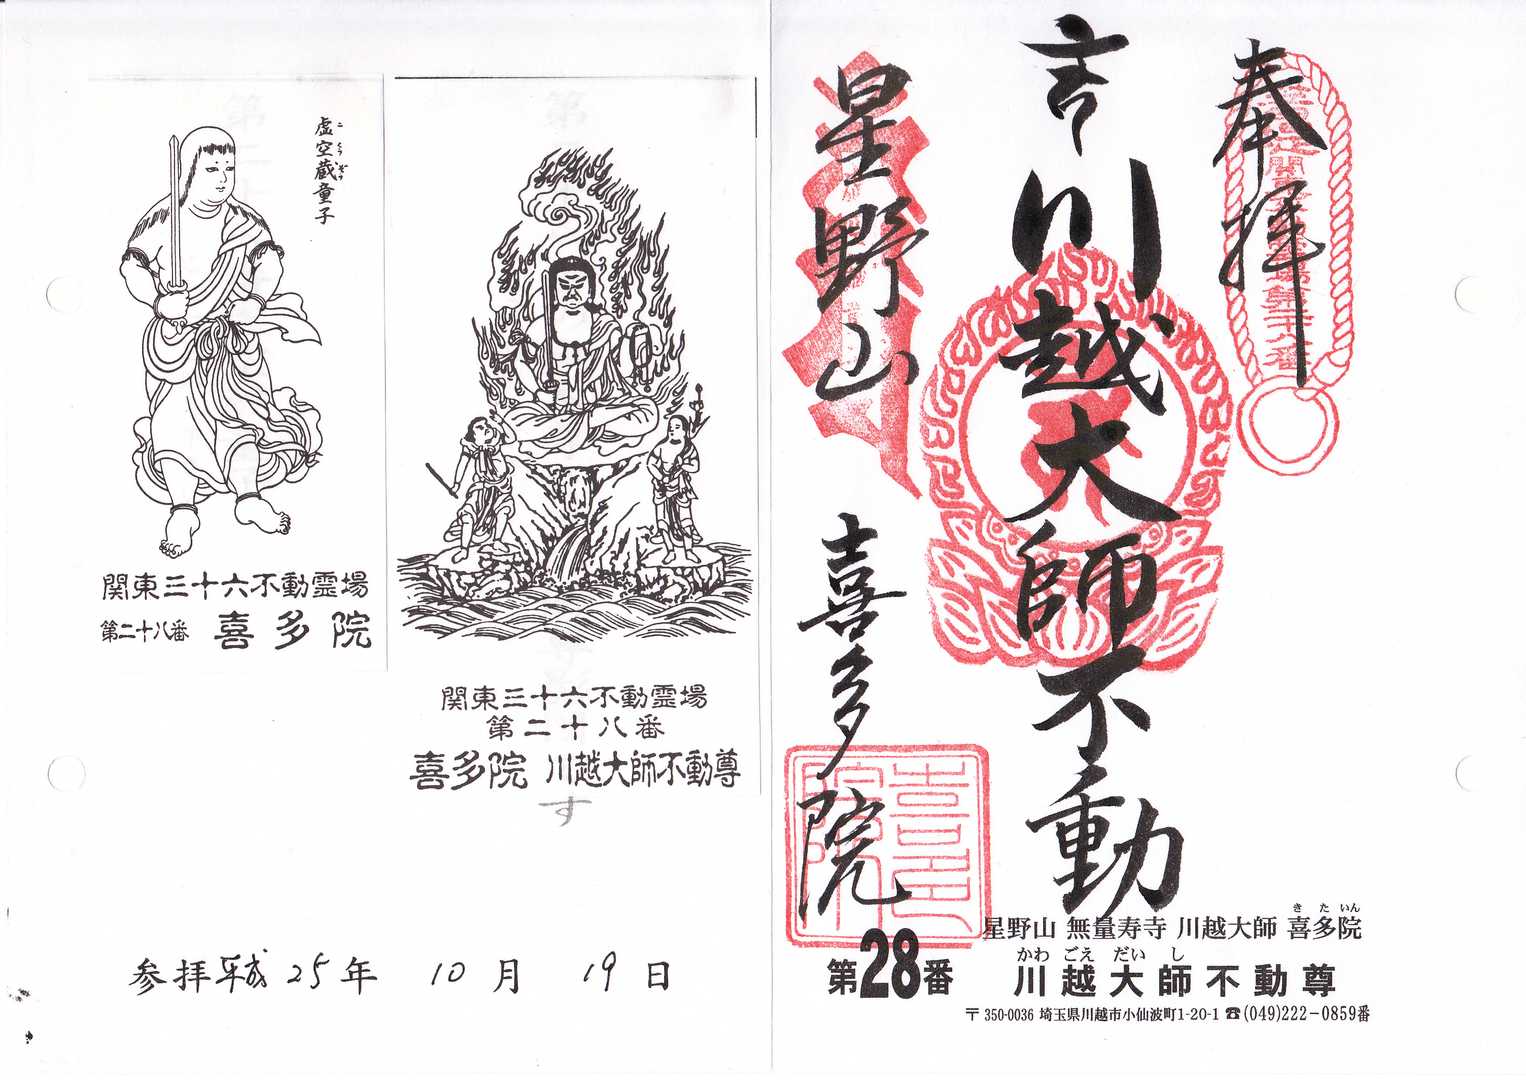 虚空蔵童子
こくうぞう
関東三十六不動霊場
第二十八番 喜多院
関東三十六不動霊場
第二十八番
喜多院 川越大師不動尊
す
参拝 平成 25年 10月 19日
奉拝
川越大師不動
星野山
喜多院
喜多院
星野山 無量寿寺 川越大師 喜多院
きたいん
第28番
かわごえだいし
川越大師不動尊
〒350-0036 埼玉県川越市小仙波町1-20-1 ☎(049)222-0859番